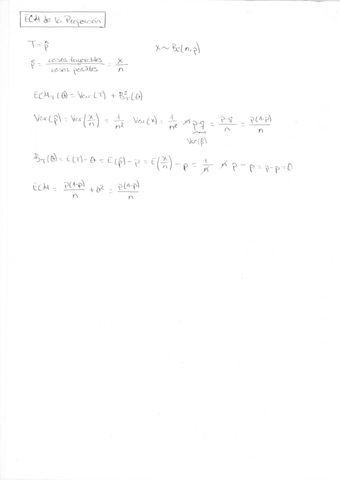 ECM de la Proporción
T = p̂
x ~ Bi(n,p)
p̂ = casos favorables / casos posibles = x/n
ECM_T(θ) = Var(T) + B²_T(θ)
Var(p̂) = Var(x/n) = 1/n² · Var(x) = 1/n² n p·q = p·q/n = p(1-p)/n
B_T(θ) = E(T) - θ = E(p̂) - p = E(x/n) - p = 1/n n p - p = p - p = 0
ECM = p(1-p)/n + 0² = p(1-p)/n